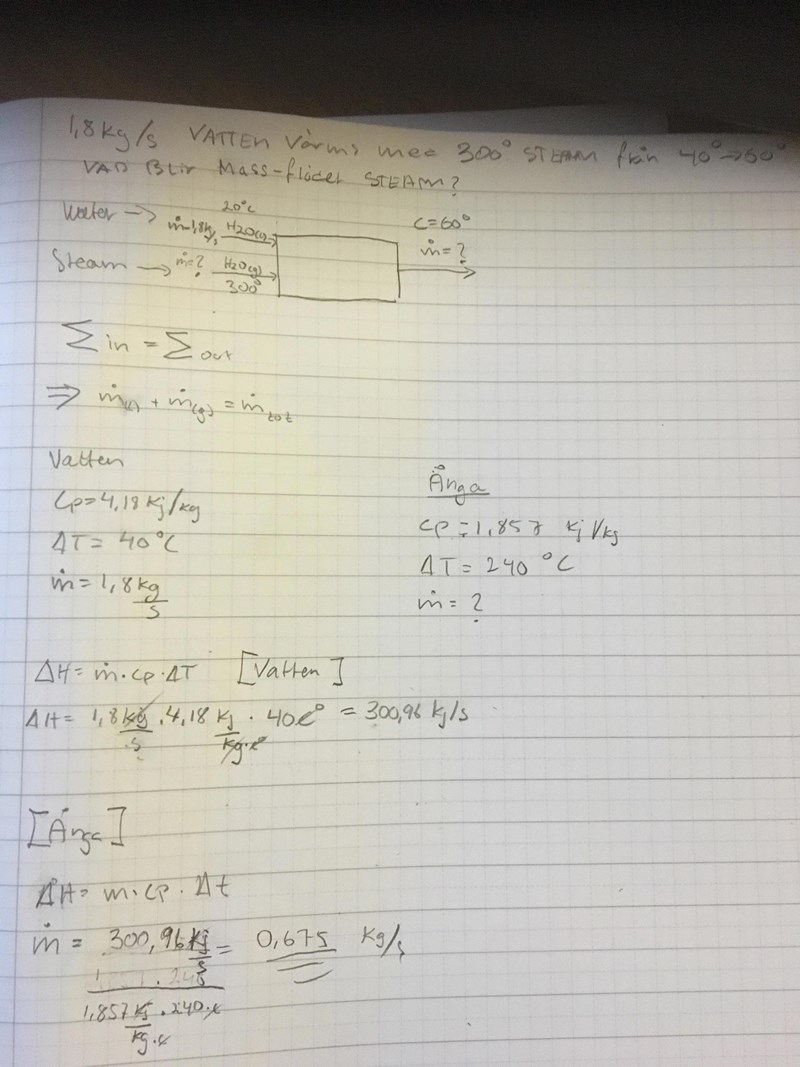 1,8 kg/s VATTEN värms med 300° STEAM från 40°→60°
VAD BLIR Mass-flödet STEAM?
Water → ṁ=1,8kg/s 20°C H2O(l)
C=60°
ṁ=?
Steam → ṁ=? H2O(g) 300°
Σ in = Σ out
⇒ ṁ(l) + ṁ(g) = ṁ tot
Vatten
Cp=4,18 kj/kg
ΔT= 40°C
ṁ= 1,8 kg/s
Ånga
Cp=1,857 kj/kg
ΔT= 240 °C
ṁ= ?
ΔH= ṁ·cp·ΔT [Vatten]
ΔH= 1,8 kg/s · 4,18 kj/kg·c° · 40c° = 300,96 kj/s
[Ånga]
ΔH= m·cp·Δt
ṁ = 300,96 kj/s / 1,857 kj/kg·c · 240·c = 0,675 kg/s